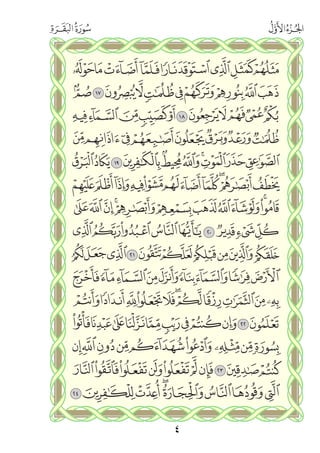 الجُزْءُ الأَوَّلُ سُورَةُ البَقَرَةِ
مَثَلُهُمْ كَمَثَلِ ٱلَّذِى ٱسْتَوْقَدَ نَارًا فَلَمَّآ أَضَآءَتْ مَا حَوْلَهُۥ
ذَهَبَ ٱللَّهُ بِنُورِهِمْ وَتَرَكَهُمْ فِى ظُلُمَٰتٍ لَّا يُبْصِرُونَ ١٧ صُمٌّۢ
بُكْمٌ عُمْىٌ فَهُمْ لَا يَرْجِعُونَ ١٨ أَوْ كَصَيِّبٍ مِّنَ ٱلسَّمَآءِ فِيهِ
ظُلُمَٰتٌ وَرَعْدٌ وَبَرْقٌ يَجْعَلُونَ أَصَٰبِعَهُمْ فِىٓ ءَاذَانِهِم مِّنَ
ٱلصَّوَٰعِقِ حَذَرَ ٱلْمَوْتِ وَٱللَّهُ مُحِيطٌۢ بِٱلْكَٰفِرِينَ ١٩ يَكَادُ ٱلْبَرْقُ
يَخْطَفُ أَبْصَٰرَهُمْ كُلَّمَآ أَضَآءَ لَهُم مَّشَوْا۟ فِيهِ وَإِذَآ أَظْلَمَ عَلَيْهِمْ
قَامُوا۟ وَلَوْ شَآءَ ٱللَّهُ لَذَهَبَ بِسَمْعِهِمْ وَأَبْصَٰرِهِمْ إِنَّ ٱللَّهَ عَلَىٰ
كُلِّ شَىْءٍ قَدِيرٌ ٢٠ يَٰٓأَيُّهَا ٱلنَّاسُ ٱعْبُدُوا۟ رَبَّكُمُ ٱلَّذِى
خَلَقَكُمْ وَٱلَّذِينَ مِن قَبْلِكُمْ لَعَلَّكُمْ تَتَّقُونَ ٢١ ٱلَّذِى جَعَلَ لَكُمُ
ٱلْأَرْضَ فِرَٰشًا وَٱلسَّمَآءَ بِنَآءً وَأَنزَلَ مِنَ ٱلسَّمَآءِ مَآءً فَأَخْرَجَ
بِهِۦ مِنَ ٱلثَّمَرَٰتِ رِزْقًا لَّكُمْ فَلَا تَجْعَلُوا۟ لِلَّهِ أَندَادًا وَأَنتُمْ
تَعْلَمُونَ ٢٢ وَإِن كُنتُمْ فِى رَيْبٍ مِّمَّا نَزَّلْنَا عَلَىٰ عَبْدِنَا فَأْتُوا۟
بِسُورَةٍ مِّن مِّثْلِهِۦ وَٱدْعُوا۟ شُهَدَآءَكُم مِّن دُونِ ٱللَّهِ إِن
كُنتُمْ صَٰدِقِينَ ٢٣ فَإِن لَّمْ تَفْعَلُوا۟ وَلَن تَفْعَلُوا۟ فَٱتَّقُوا۟ ٱلنَّارَ
ٱلَّتِى وَقُودُهَا ٱلنَّاسُ وَٱلْحِجَارَةُ أُعِدَّتْ لِلْكَٰفِرِينَ ٢٤
٤